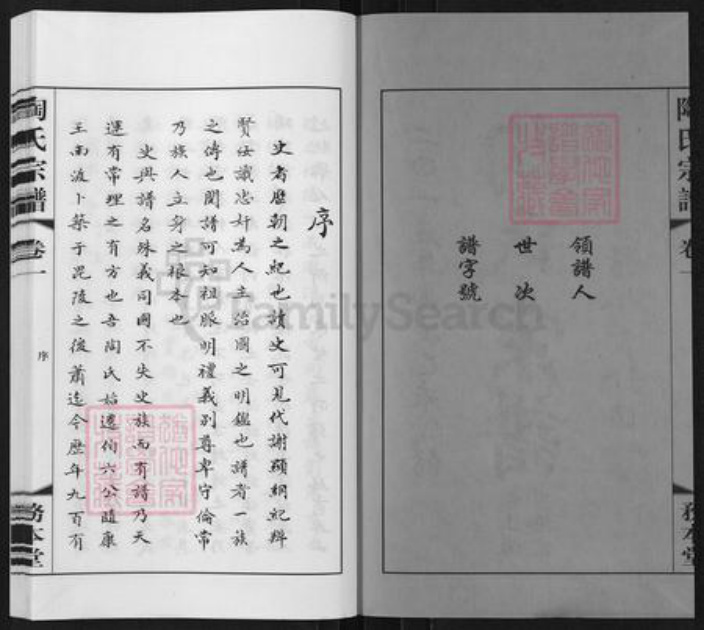 陶氏宗譜
卷一
領譜人
世次
譜字號
務本堂
序
史者歷朝之紀也讀史可見代謝顯綱紀辨
賢佞識忠奸為人主治國之明鑑也譜者一族
之傳也閱譜可知祖脈明禮義別尊卑守倫常
乃族人立身之根本也
史與譜名殊義同國不失史族而有譜乃天
運有常理之有方也吾陶氏始遷侑六公隨康
王南渡卜築于毘陵之後蕭迄今歷年九百有
陶氏宗譜
卷一
序
務本堂
FamilySearch